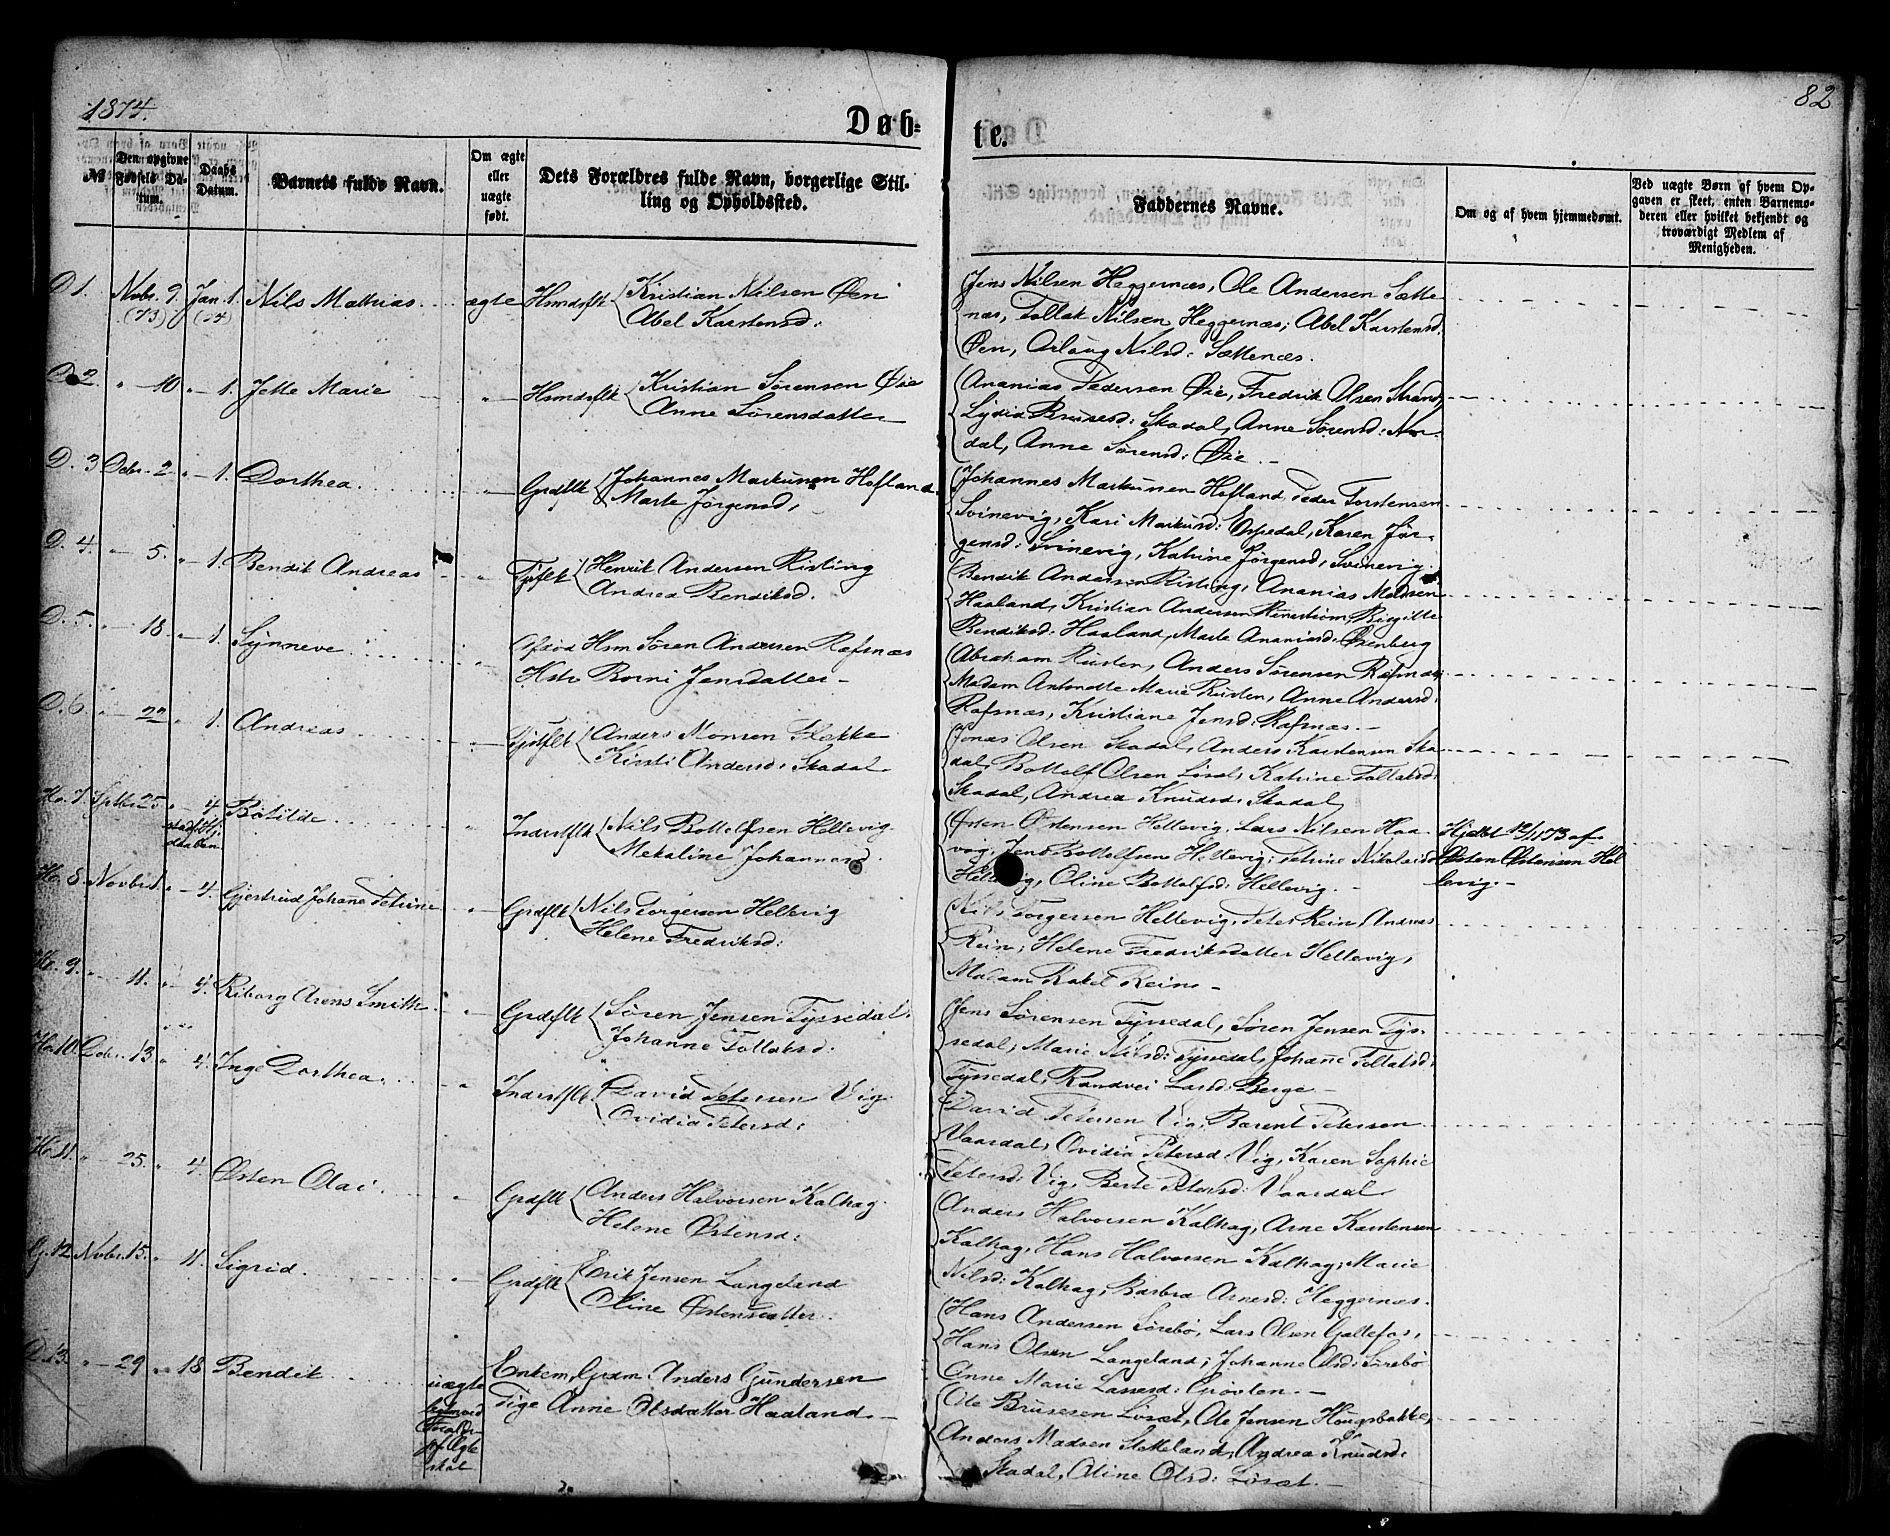 1874.
82
Døb-
te.
№
Den opgivne Fødsels Datum.
Daabs Datum.
Barnets fulde Navn.
Om ægte eller uægte født.
Dets Forældres fulde Navn, borgerlige Stilling og Opholdssted.
Faddernes Navne.
Om og af hvem hjemmedøbt.
Ved uægte Børn af hvem Opgaven er skeet, enten Barnemoderen eller hvilket bekjendt og troværdigt Medlem af Menigheden.
D 1. Novbr. 9. (73) Jan. 1. (74) Nils Mathias ægte Hsmdsflk Kristian Nilsen Øen
Abel Karstensd:
Jens Nilsen Heggernæs, Ole Andersen Sætte-
næs, Tollak Nilsen Heggernæs, Abel Karstensd.
Øen, Arlaug Nilsd: Sættenæs.
D. 2. " 10 " 1. Jette Marie " Hsmdsflk Kristian Sørensen Øie
Anne Sørensdatter
Ananias Pedersen Øie, Fredrik Olsen Strand,
Lydia Brusesd: Skadal, Anne Sørensd: No-
dal, Anne Sørensd: Øie.
D. 3 Decbr. 2 " 1. Dorthea " Grdflk Johannes Markusen Hofland
Marte Jørgensd,
Johannes Markusen Hofland, Peder Torstensen
Svinevig, Kari Markusd: Espedal, Karen Jør-
gensd: Svinevig, Katrine Jørgensd, Svinevig.
D. 4. " 5. " 1. Bendik Andreas " Tjflk Henrik Andersen Risting
Andrea Bendiksd.
Bendik Andersen Risting, Ananias Madsen
Haaland, Kristian Andersen Birgitte
Bendiksd. Haaland, Marte Ananiasd.
D. 5. " 18. " 1. Synneve " Hsm Søren Andersen Rafsnæs
Hstr Borni Jensdatter
Abraham Rusten, Anders Sørensen Rafsnæs,
Madam Antonette Marie Rusten, Anne Andersd.
Rafsnæs, Kristiane Jensd: Rafsnæs.
D. 6. " 22 " 1. Andreas " Tjstflk Anders Monsen Flække
Kirsti Andersd. Skadal
Jonas Olsen Skadal, Anders Karstensen Ska-
dal, Bottolf Olsen Løset, Katrine Tollaksd:
Skadal, Andrea Knudsd. Skadal
He. 7. Septbr. 25 " 4. Botilde " Inderstflk Nils Bottolfsen Hellevig
Mekaline Johannesd.
Østen Østensen Hellevig, Lars Nilsen Haa-
vig, Jens Bottolfsen Hellevig, Petrine Nikolaisd.
Hellevig, Oline Bottolfsd: Hellevig.
Hjdbt 12/1173 af
Østen Østensen Hel
levig.
He. 8. Novbr. 1. " 4. Gjertrud Johane Petrine " Grdflk Nils Torgersen Hellevig
Helene Fredriksd:
Nils Torgersen Hellevig, Peter Rein, Andreas
Rein, Helene Fredriksdatter Hellevig,
Madam Rakel Rein.
He. 9. " 11. " 4. Riborg Arens Smith " Grdflk Søren Jensen Tyssedal.
Johanne Tollaksd:
Jens Sørensen Tyssedal, Søren Jensen Tys-
sedal, Marie Nilsd: Tyssedal, Johane Tollaksd:
Tyssedal, Randvei Larsd: Berge
He. 10. Decbr. 13. " 4. Inge Dorthea " Inderstflk. David Petersen Vig.
Ovidia Petersd:
David Petersen Vig, Barent Petersen
Vaardal, Ovidia Petersd. Vig, Karen Sophie
Petersd: Vig, Berte Petersd: Vaardal
He. 11. " 25. " 4. Østen Olai " Grdflk Anders Halvorsen Kalhag.
Helene Østensd:
Anders Halvorsen Kalhag, Arne Karstensen
Kalhag, Hans Halvorsen Kalhag, Marie
Nilsd: Kalhag, Barbra Arnesd: Heggernæs.
G. 12. Novbr. 15. " 11. Sigrid " Grdflk Erik Jensen Langeland
Oline Østensdatter.
Hans Andersen Sørebø, Lars Olsen Gallefos,
Hans Olsen Langeland, Johanne Olsd: Sørebø
Anne Marie Lassesd: Grøvlen.
D. 13. " 29 " 18 Bendik uægte Enkem, Grdm. Anders Gundersen
Pige Anne Olsdatter Haaland
Ole Brusesen Løset, Ole Jensen Hougsbakke,
Anders Madsen Stokkeland, Andrea Knudsd:
Skadal, Oline Olsd: Løset.